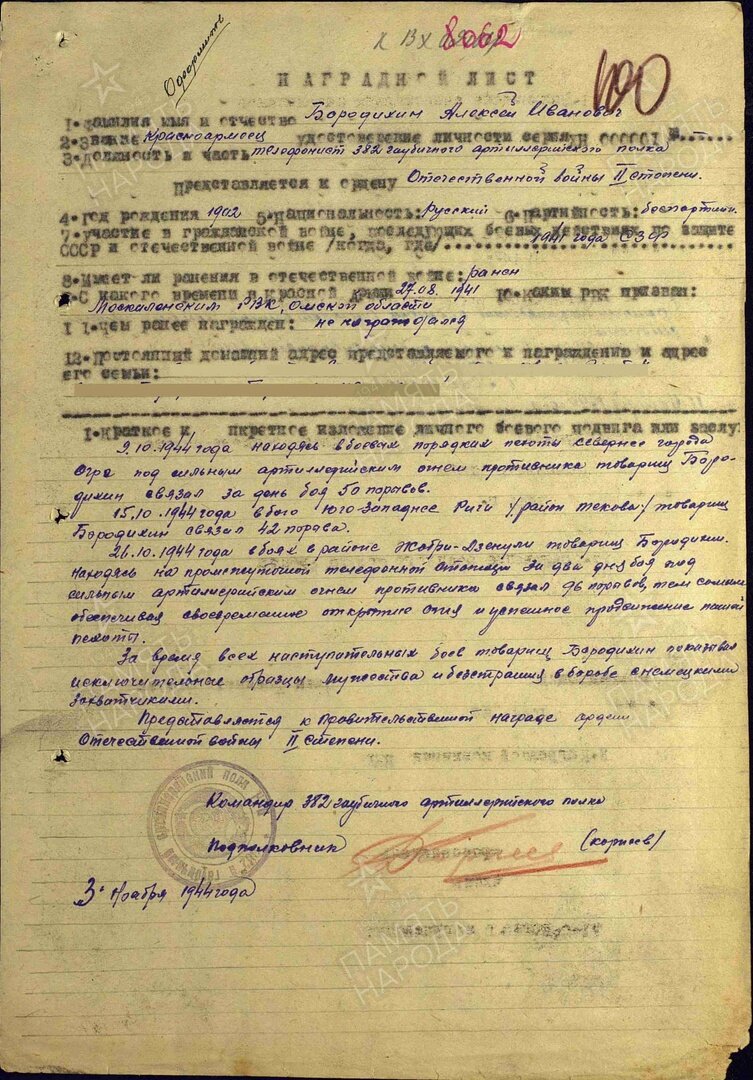 Одобрмитов
к ВХ 8062
НАГРАДНОЙ ЛИСТ
1. Фамилия имя и отчество Бородихин Алексей Иванович
2. Звание Красноармеец удостоверение личности серия
3. Должность и часть телефонист 382 гаубичного артиллерийского полка
Представляется к ордену Отечественной войны II степени.
4. год рождения 1902 5. Национальность: Русский 6. Партийность: беспартийн.
7. участие в гражданской войне, последующих боевых действиях по защите
СССР и отечественной войне /когда, где/ 1941 года СЗФ
8. Имеет ли ранения в отечественной войне: ранен
9. С какого времени в красной армии 27.08. 1941 10. каким рвк призван:
Москаленским РВК, Омской области
11. чем ранее награжден: не награждался
12. Постоянный домашний адрес представляемого к награждению и адрес
его семьи:
1. Краткое к пкретное изложение личного боевого подвига или заслу
9.10.1944 года находясь в боевых порядках пехоты севернее города
Огре под сильным артиллерийским огнем противника товарищ Боро-
дихин связал за день боя 50 порывов.
15.10.1944 года в бою юго-западнее Риги /район / товарищ
Бородихин связал 42 порыва.
26.10.1944 года в боях в районе Жобри-Дзенули товарищ Бородихин.
находясь на промежуточной телефонной станции за два дня боя под
сильным артиллерийским огнем противника связал 96 порывов, тем самым
обеспечивая своевременное открытие огня и успешное продвижение нашей
пехоты.
За время всех наступательных боев товарищ Бородихин показывал
исключительные образцы мужества и безстрашия в борьбе с немецкими
захватчиками.
Предоставляется к правительственной награде ордена
Отечественной войны II степени.
Командир 382 гаубичного артиллерийского полка
Подполковник (корнев)
3. Ноября 1944 года
ПАМЯТЬ НАРОДА